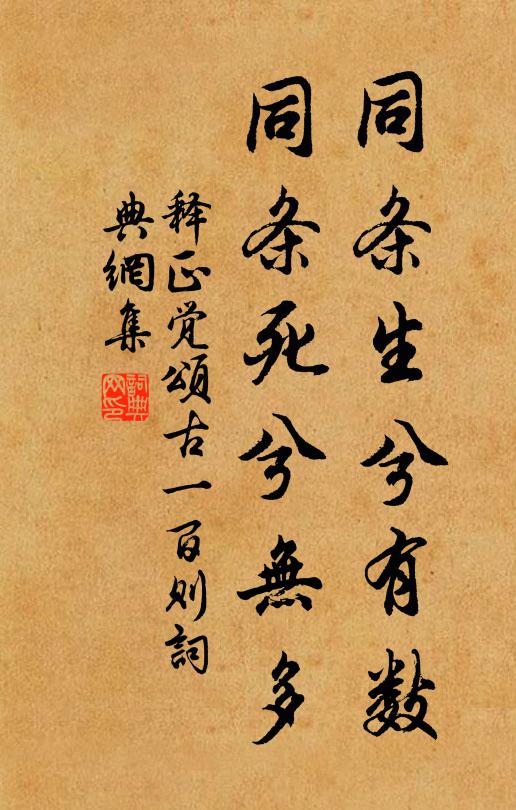 同条生兮有数
同条死兮無多
释正觉頌古一百则詞
典網集
詞典
网印